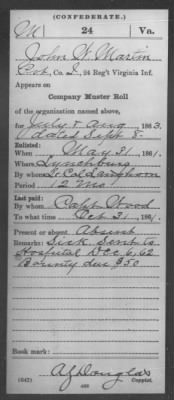 (CONFEDERATE.)
M 24 Va.
John W. Martin
Co. I, 24 Reg't Virginia Inf.
Appears on
Company Muster Roll
of the organization named above,
for July & Aug, 1863.
dated Sept 5
Enlisted:
When May 31, 1861.
Where Lynchburg
By whom Lt. Col. Langhorn
Period 12 Mo
Last paid:
By whom Capt. Wood
To what time Oct 31, 1861.
Present or absent Absent
Remarks: Sick. Sent to
Hospital Dec 6, 62
Bounty due $50
Book mark:
(642) A J Douglas
Copyist.